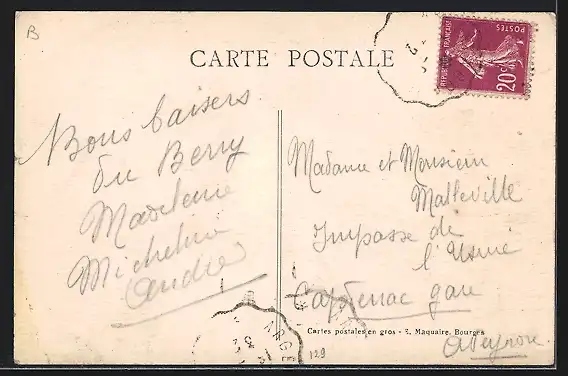 B
CARTE POSTALE
REPUBLIQUE FRANÇAISE
POSTES
20c
Bons baisers
du Berry
Madeleine
Micheline
André
Madame et Monsieur
Malleville
Impasse de
l'Usine
Capdenac gare
Aveyron
Cartes postales en gros - E. Maquaire, Bourges
129